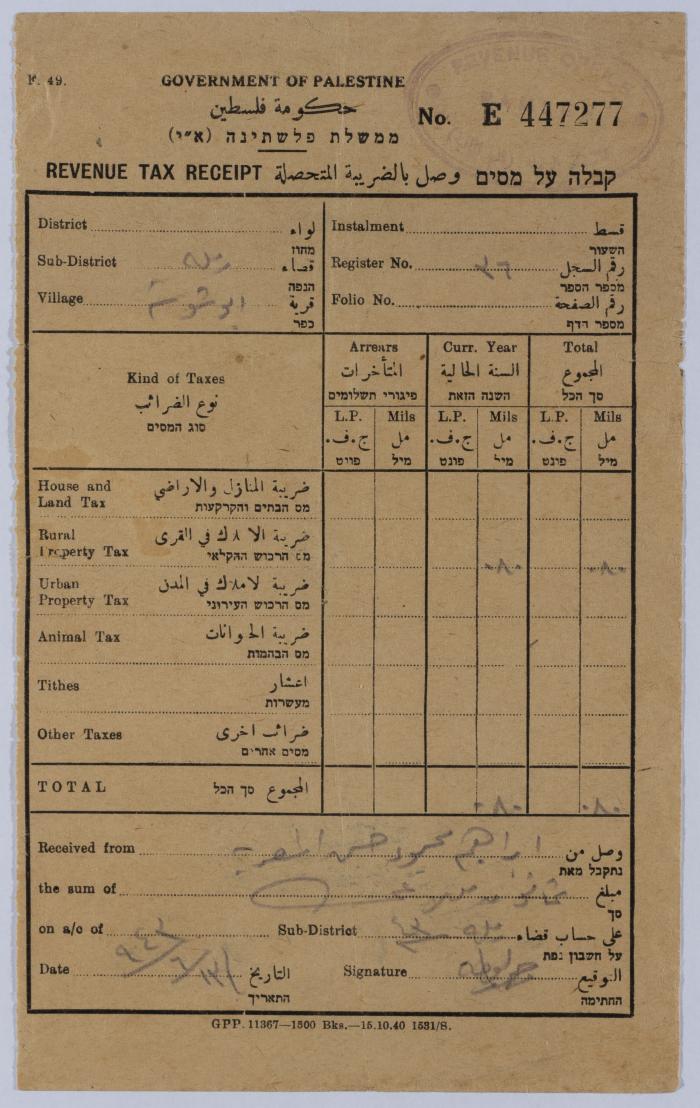 F. 49.
GOVERNMENT OF PALESTINE
حكومة فلسطين
No. E 447277
ממשלת פלשתינה (א״י)
REVENUE TAX RECEIPT وصل بالضريبة المتحصلة קבלה על מסים
District لواء
מחוז
Instalment قسط
השעור
Sub-District رمله قضاء
הנפה
Register No. ٢٦ رقم السجل
מספר הספר
Village ابو شوشة قرية
כפר
Folio No. رقم الصفحة
מספר הדף
Kind of Taxes
نوع الضرائب
סוג המסים
Arrears
المتأخرات
פיגורי תשלומים
Curr. Year
السنة الحالية
השנה הזאת
Total
المجموع
סך הכל
L.P. Mils L.P. Mils L.P. Mils
ج.ف. مل ج.ف. مل ج.ف. مل
פויט מיל פונט מיל פונט מיל
House and ضريبة المنازل والاراضي
Land Tax מס הבתים והקרקעות
Rural ضريبة الا لاك في القرى
Property Tax מס הרכוש החקלאי ٠٨٠ ٠٨٠
Urban ضريبة لاملاك في المدن
Property Tax מס הרכוש העירוני
Animal Tax ضريبة الحيوانات
מס הבהמות
Tithes اعشار
מעשרות
Other Taxes ضرائب اخرى
מסים אחרים
TOTAL المجموع סך הכל ٠٨٠ ٠٨٠
Received from ابراهيم محمود حسن وصل من
נתקבל מאת
the sum of ثمانون مل مبلغ
סך
on a/c of Sub-District رمله على حساب قضاء
על חשבון נפת
Date التاريخ
התאריך
Signature التوقيع
החתימה
GPP. 11367—1500 Bks.—15.10.40 1531/S.
REVENUE